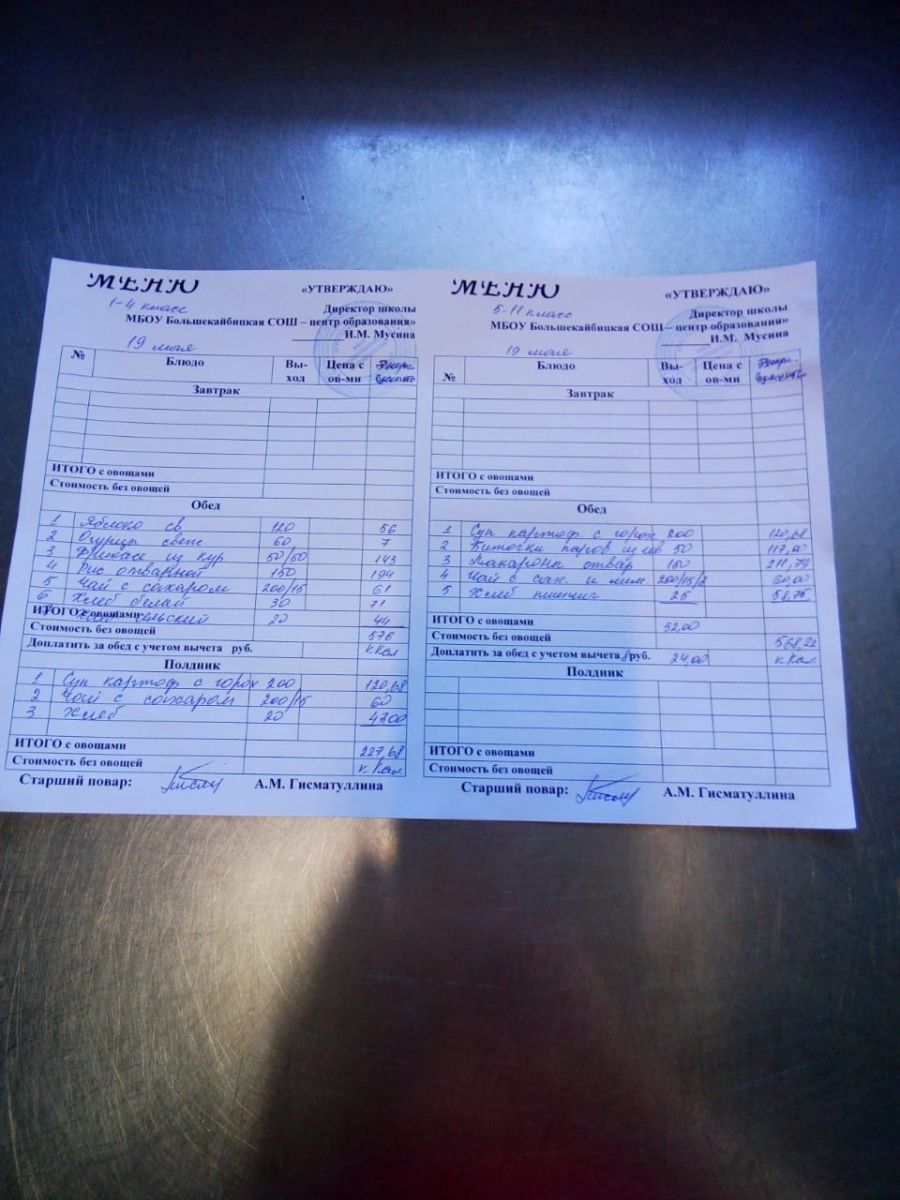 МЕНЮ
1-4 класс
«УТВЕРЖДАЮ»
Директор школы
МБОУ Большекайбицкая СОШ – центр образования»
И.М. Мусина
19 мая
№ Блюдо Вы-ход Цена с ов-ми
Завтрак
ИТОГО с овощами
Стоимость без овощей
Обед
1 Яблоко св 120 56
2 Огурцы свеж 60 7
3 Фрикасе из кур 50/50 143
4 Рис отварной 150 194
5 Чай с сахаром 200/15 61
6 Хлеб белый 30 71
ИТОГО с овощами сельский 20 44
Стоимость без овощей 576
Доплатить за обед с учетом вычета руб. к.Кал
Полдник
1 Суп картоф с горох 200 120,68
2 Чай с сахаром 200/15 60
3 Хлеб 20 47,00
ИТОГО с овощами 227,68
Стоимость без овощей к.Кал
Старший повар: А.М. Гисматуллина
МЕНЮ
5-11 класс
«УТВЕРЖДАЮ»
Директор школы
МБОУ Большекайбицкая СОШ – центр образования»
И.М. Мусина
19 мая
№ Блюдо Вы-ход Цена с ов-ми
Завтрак
ИТОГО с овощами
Стоимость без овощей
Обед
1 Суп картоф с горох 200 120,68
2 Биточки паров из 50 117,00
3 Макароны отвар 150 211,79
4 Чай с сах и лим 200/15/8 60,00
5 Хлеб пшениц 25 58,75
ИТОГО с овощами 32,00
Стоимость без овощей 568,22
Доплатить за обед с учетом вычета руб. 24,00 к.Кал
Полдник
ИТОГО с овощами
Стоимость без овощей
Старший повар: А.М. Гисматуллина